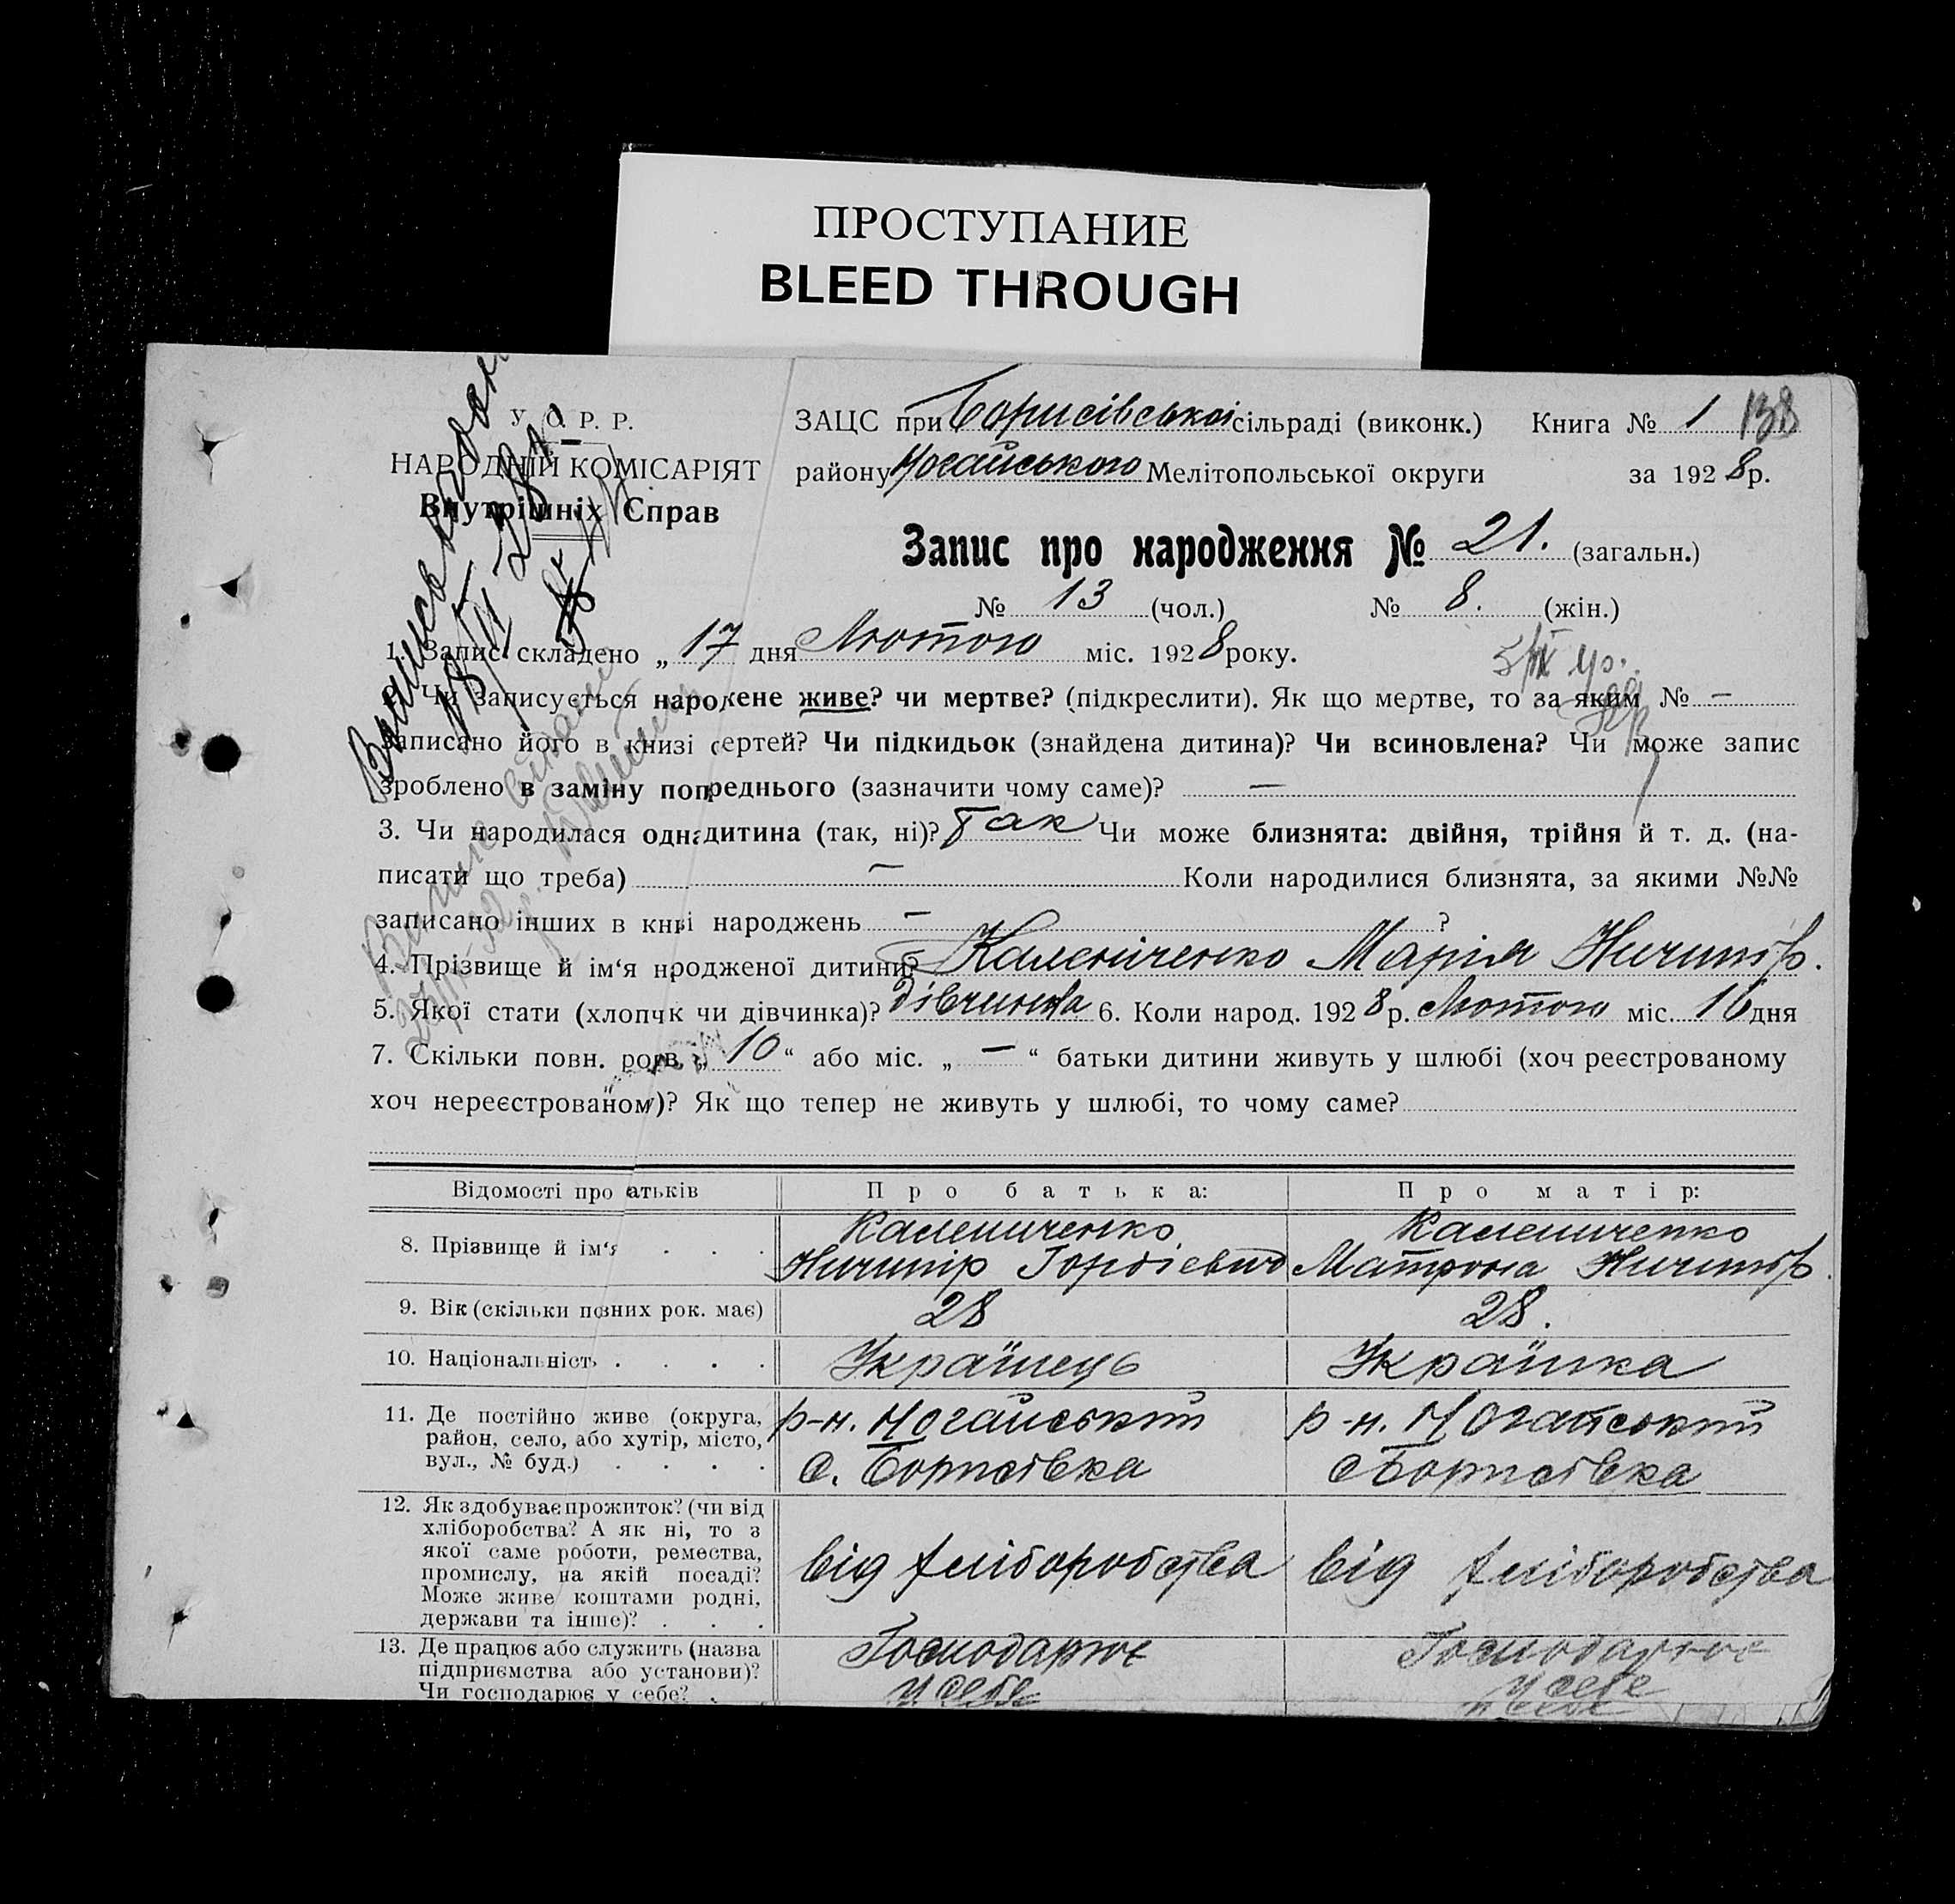 ПРОСТУПАНИЕ
BLEED THROUGH
У. С. Р. Р.
НАРОДНІЙ КОМІСАРІЯТ
Внутрішніх Справ
ЗАЦС при Борисівській сільраді (виконк.) Книга № 1 138
району Ногайського Мелітопольської округи за 1928 р.
Запис про народження № 21. (загальн.)
№ 13 (чол.) № 8. (жін.)
1. Запис складено „17 дня Лютого міс. 1928 року.
Чи записується народжене живе? чи мертве? (підкреслити). Як що мертве, то за яким № —
записано його в книзі смертей? Чи підкидьок (знайдена дитина)? Чи всиновлена? Чи може запис
зроблено в заміну попреднього (зазначити чому саме)? —
3. Чи народилася одна дитина (так, ні)? Так Чи може близнята: двійня, трійня й т. д. (на-
писати що треба) — Коли народилися близнята, за якими №№
записано інших в книзі народжень — ?
4. Прізвище й ім‘я народженої дитини? Каленіченко Марія Ничипір.
5. Якої стати (хлопчик чи дівчинка)? дівчинка 6. Коли народ. 1928 р. Лютого міс. 16 дня
7. Скільки повн. років „10“ або міс. „—“ батьки дитини живуть у шлюбі (хоч реєстрованому
хоч нереєстрованому)? Як що тепер не живуть у шлюбі, то чому саме?
Відомості про батьків Про батька: Про матір:
8. Прізвище й ім‘я . . . Калениченко Ничипір Гордієвич Калениченко Матрона Ничипір.
9. Вік (скільки повних рок. має) 28 28.
10. Національність . . . . Українець Українка
11. Де постійно живе (округа, р-н. Ногайський р-н. Ногайський
район, село, або хутір, місто,
вул., № буд.) . . . . с. Борисівка с Борисівка
12. Як здобуває прожиток? (чи від
хліборобства? А як ні, то з
якої саме роботи, ремества,
промислу, на якій посаді? від хліборобства від хліборобства
Може живе коштами родні,
держави та інше)? . . .
13. Де працює або служить (назва Господарює Господарює
підприємства або установи)?
Чи господарює у себе? . у себе у себе